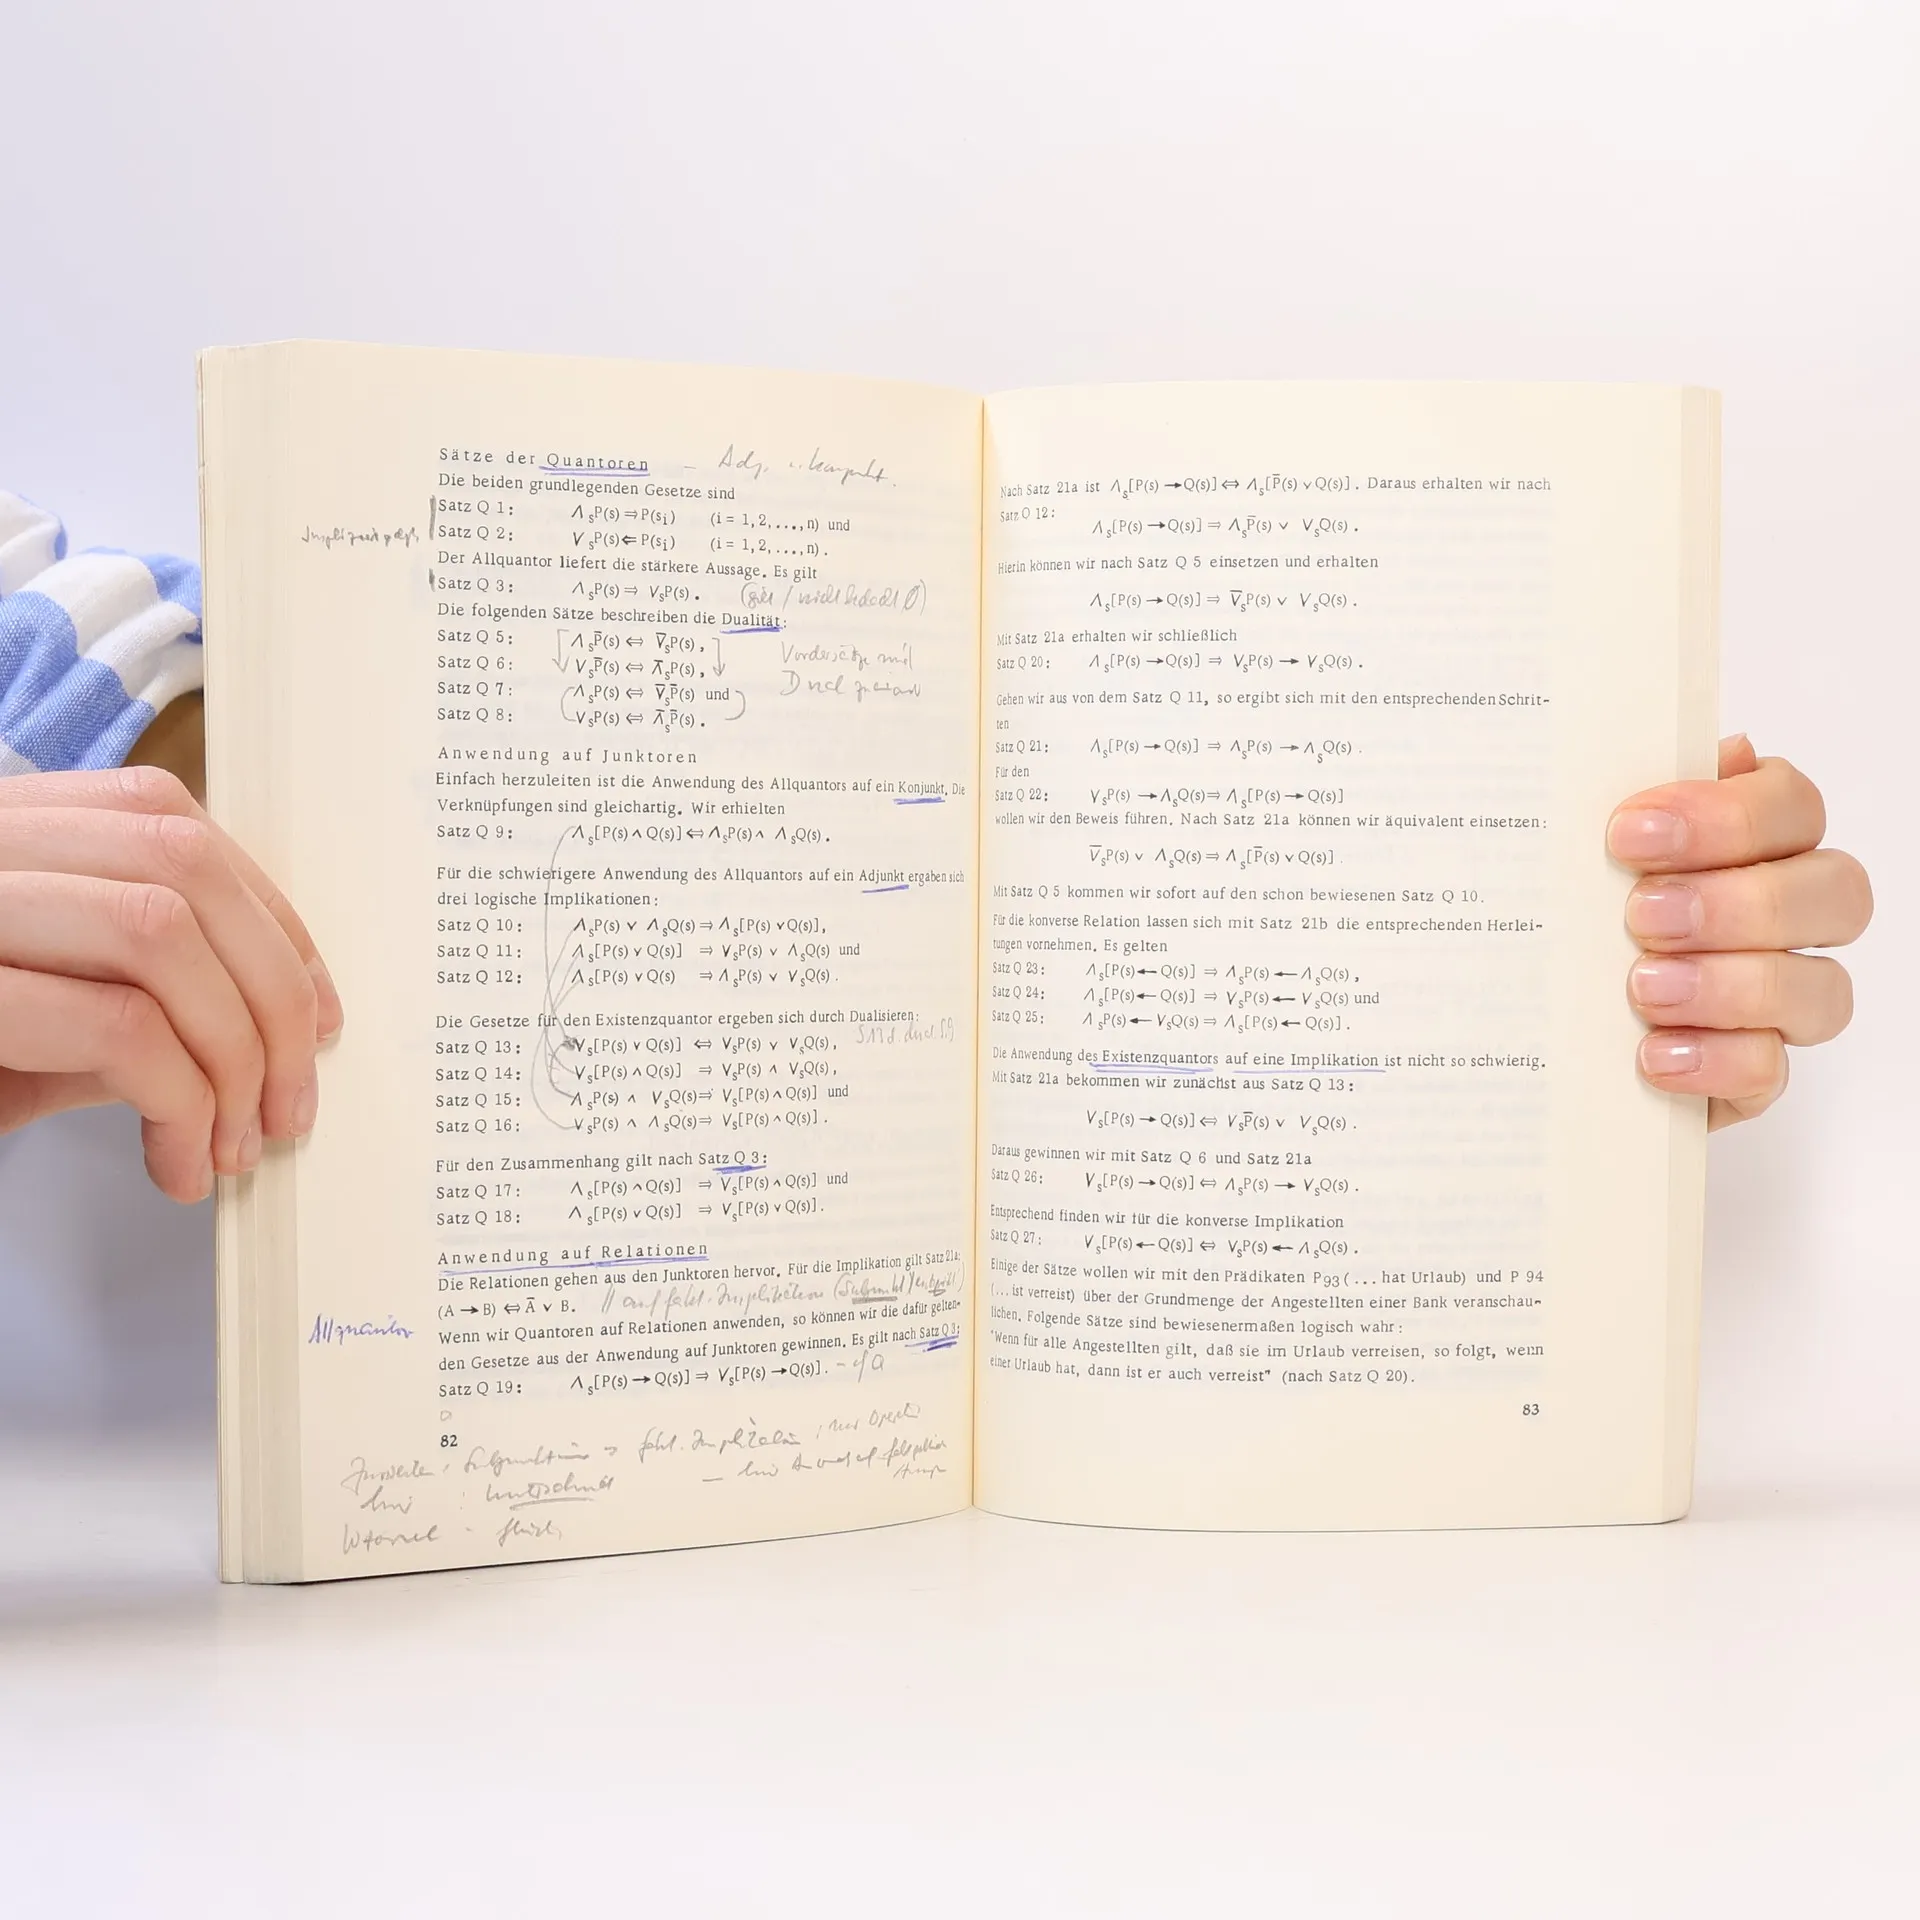 Sätze der Quantoren
Die beiden grundlegenden Gesetze sind
Satz Q 1: Λ_sP(s)⇒P(s_i) (i = 1,2,...,n) und
Satz Q 2: V_sP(s)⇐P(s_i) (i = 1,2,...,n).
Der Allquantor liefert die stärkere Aussage. Es gilt
Satz Q 3: Λ_sP(s)⇒ V_sP(s).
Die folgenden Sätze beschreiben die Dualität:
Satz Q 5: Λ_sP̅(s) ⇔ V̅_sP(s),
Satz Q 6: V_sP̅(s) ⇔ Λ̅_sP(s),
Satz Q 7: Λ_sP(s) ⇔ V̅_sP̅(s) und
Satz Q 8: V_sP(s) ⇔ Λ̅_sP̅(s).
Vordersätze mit
Anwendung auf Junktoren
Einfach herzuleiten ist die Anwendung des Allquantors auf ein Konjunkt. Die
Verknüpfungen sind gleichartig. Wir erhielten
Satz Q 9: Λ_s[P(s)∧Q(s)]⇔Λ_sP(s)∧ Λ_sQ(s).
Für die schwierigere Anwendung des Allquantors auf ein Adjunkt ergaben sich
drei logische Implikationen:
Satz Q 10: Λ_sP(s) ∨ Λ_sQ(s)⇒Λ_s[P(s)∨Q(s)],
Satz Q 11: Λ_s[P(s)∨Q(s)] ⇒ V_sP(s) ∨ Λ_sQ(s) und
Satz Q 12: Λ_s[P(s)∨Q(s) ⇒Λ_sP(s) ∨ V_sQ(s).
Die Gesetze für den Existenzquantor ergeben sich durch Dualisieren:
Satz Q 13: V_s[P(s)∨Q(s)] ⇔ V_sP(s) ∨ V_sQ(s),
Satz Q 14: V_s[P(s)∧Q(s)] ⇒ V_sP(s) ∧ V_sQ(s),
Satz Q 15: Λ_sP(s) ∧ V_sQ(s)⇒ V_s[P(s)∧Q(s)] und
Satz Q 16: V_sP(s) ∧ Λ_sQ(s)⇒ V_s[P(s)∧Q(s)].
Für den Zusammenhang gilt nach Satz Q 3:
Satz Q 17: Λ_s[P(s)∧Q(s)] ⇒ V_s[P(s)∧Q(s)] und
Satz Q 18: Λ_s[P(s)∨Q(s)] ⇒ V_s[P(s)∨Q(s)].
Anwendung auf Relationen
Die Relationen gehen aus den Junktoren hervor. Für die Implikation gilt Satz 21a:
(A→B)⇔A̅ ∨ B.
Wenn wir Quantoren auf Relationen anwenden, so können wir die dafür gelten-
Allquantor
den Gesetze aus der Anwendung auf Junktoren gewinnen. Es gilt nach Satz Q 3:
Satz Q 19: Λ_s[P(s)→Q(s)]⇒ V_s[P(s)→Q(s)].
82
Nach Satz 21a ist Λ_s[P(s)→Q(s)]⇔Λ_s[P̅(s)∨Q(s)]. Daraus erhalten wir nach
Satz Q 12:
Λ_s[P(s)→Q(s)]⇒Λ_sP̅(s) ∨ V_sQ(s).
Hierin können wir nach Satz Q 5 einsetzen und erhalten
Λ_s[P(s)→Q(s)]⇒ V̅_sP(s) ∨ V_sQ(s).
Mit Satz 21a erhalten wir schließlich
Satz Q 20: Λ_s[P(s)→Q(s)] ⇒ V_sP(s)→ V_sQ(s).
Gehen wir aus von dem Satz Q 11, so ergibt sich mit den entsprechenden Schrit-
ten
Satz Q 21: Λ_s[P(s)→Q(s)] ⇒ Λ_sP(s) →Λ_sQ(s).
Für den
Satz Q 22: V_sP(s) →Λ_sQ(s)⇒Λ_s[P(s)→Q(s)]
wollen wir den Beweis führen. Nach Satz 21a können wir äquivalent einsetzen:
V̅_sP(s) ∨ Λ_sQ(s)⇒Λ_s[P̅(s)∨Q(s)].
Mit Satz Q 5 kommen wir sofort auf den schon bewiesenen Satz Q 10.
Für die konverse Relation lassen sich mit Satz 21b die entsprechenden Herlei-
tungen vornehmen. Es gelten
Satz Q 23: Λ_s[P(s)←Q(s)] ⇒Λ_sP(s)←Λ_sQ(s),
Satz Q 24: Λ_s[P(s)←Q(s)] ⇒ V_sP(s)← V_sQ(s) und
Satz Q 25: Λ_sP(s)←V_sQ(s)⇒Λ_s[P(s)←Q(s)].
Die Anwendung des Existenzquantors auf eine Implikation ist nicht so schwierig.
Mit Satz 21a bekommen wir zunächst aus Satz Q 13:
V_s[P(s)→Q(s)]⇔V_sP̅(s) ∨ V_sQ(s).
Daraus gewinnen wir mit Satz Q 6 und Satz 21a
Satz Q 26: V_s[P(s)→Q(s)]⇔Λ_sP(s)→ V_sQ(s).
Entsprechend finden wir für die konverse Implikation
Satz Q 27: V_s[P(s)←Q(s)]⇔ V_sP(s)←Λ_sQ(s).
Einige der Sätze wollen wir mit den Prädikaten P93 (... hat Urlaub) und P 94
(... ist verreist) über der Grundmenge der Angestellten einer Bank veranschau-
lichen. Folgende Sätze sind bewiesenermaßen logisch wahr:
"Wenn für alle Angestellten gilt, daß sie im Urlaub verreisen, so folgt, wenn
einer Urlaub hat, dann ist er auch verreist" (nach Satz Q 20).
83